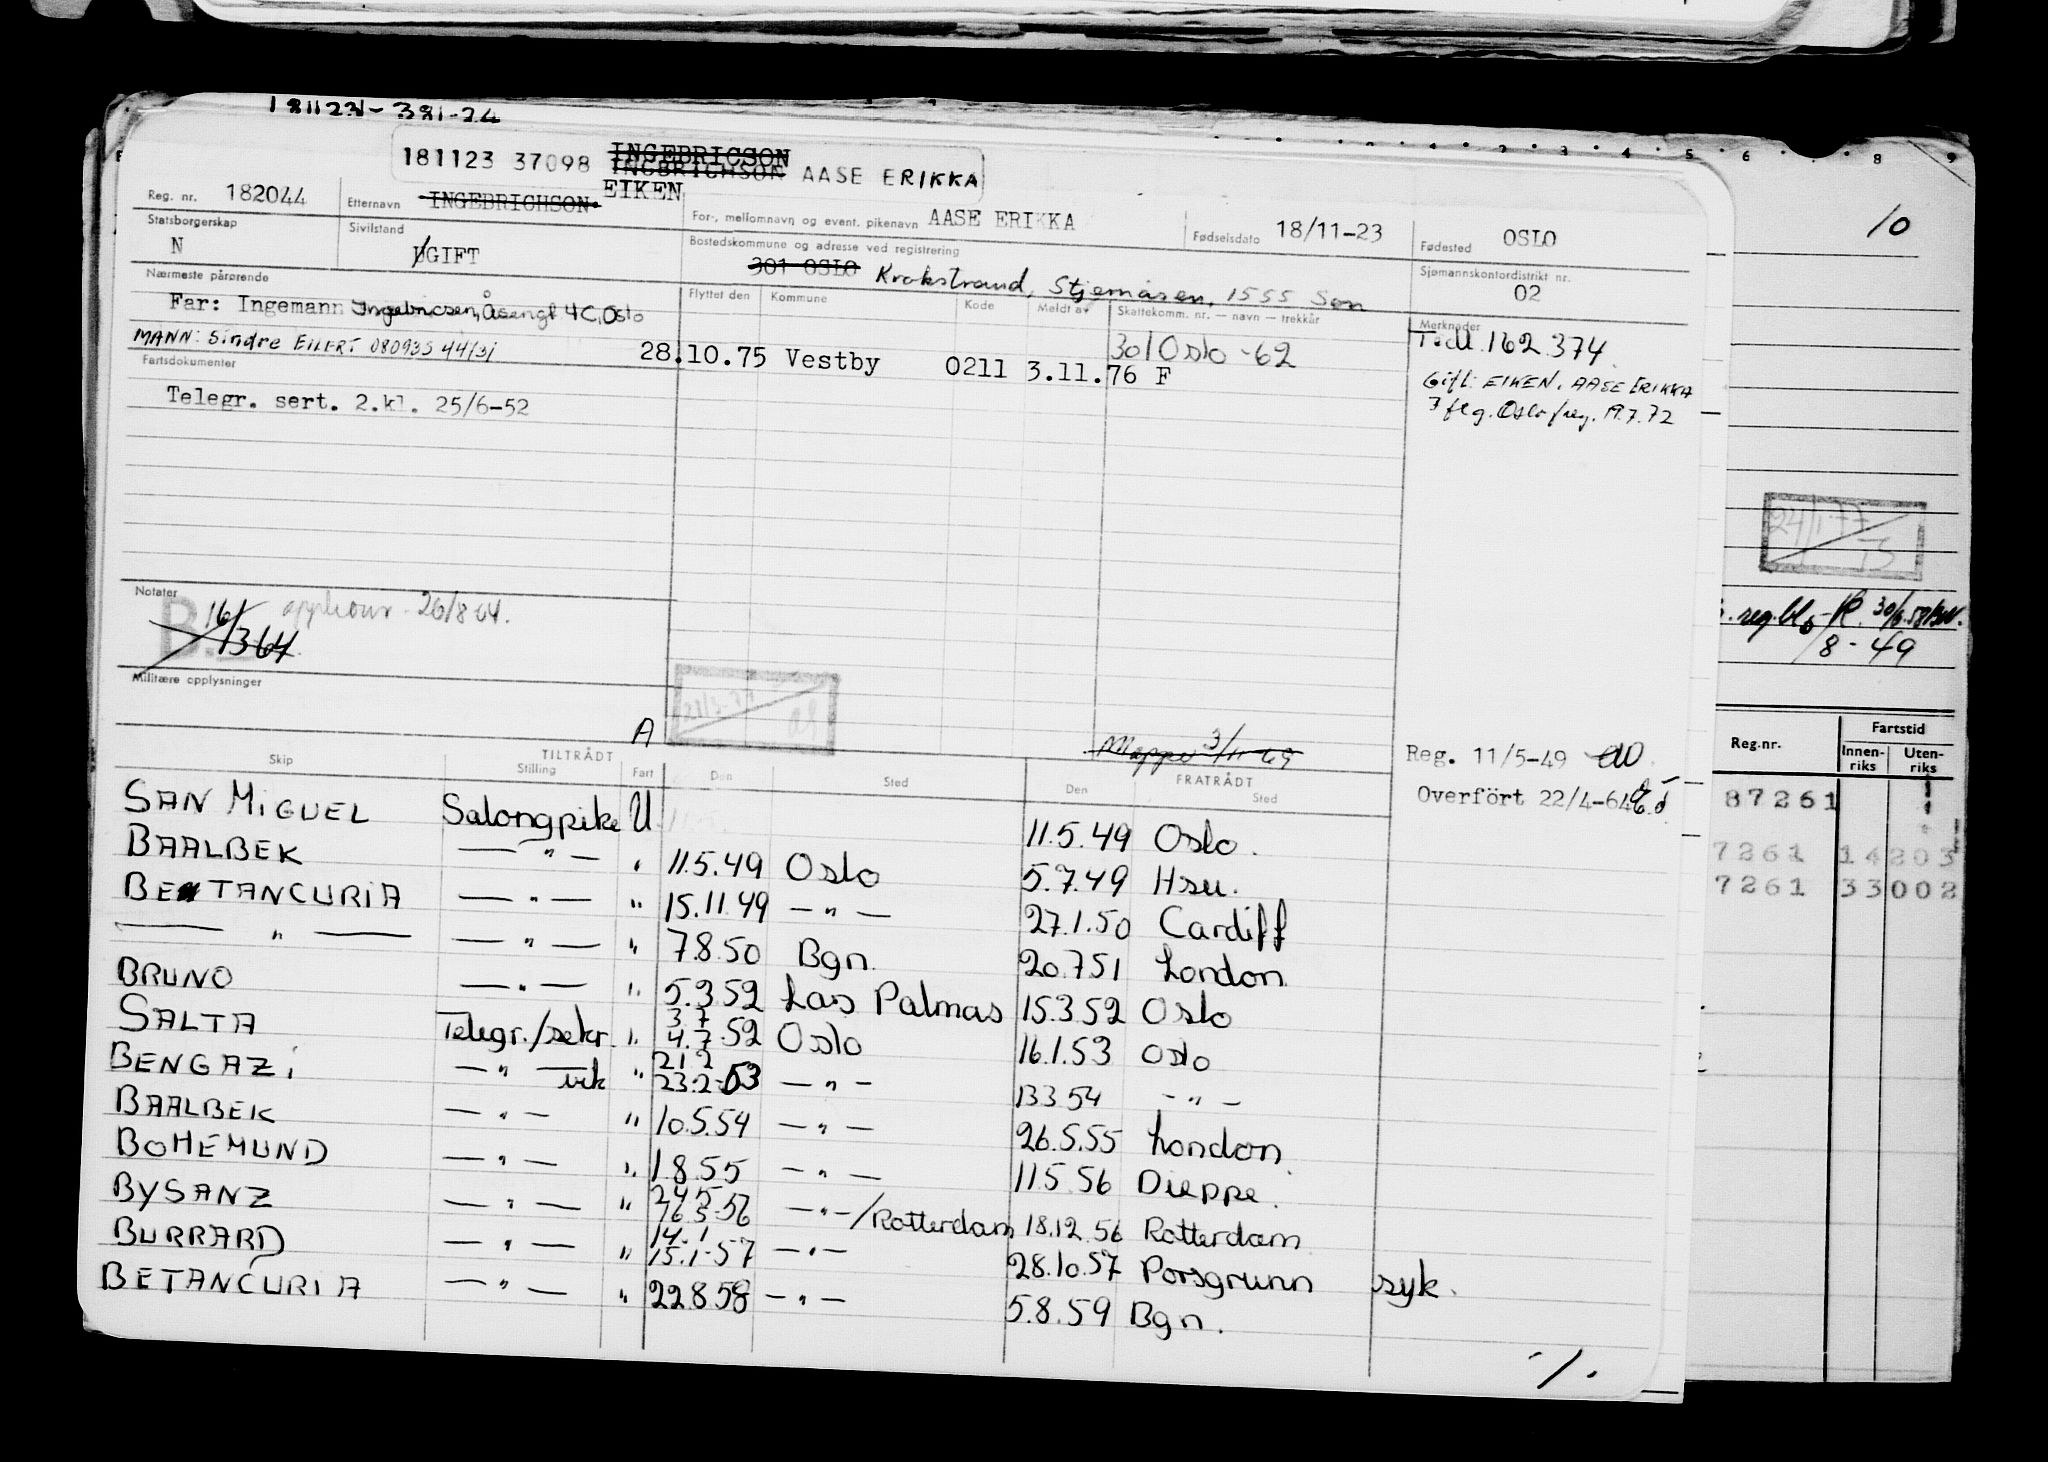 181123-381-24
181123 37098 INGEBRICSON INGBRICHSON AASE ERIKKA
Reg. nr. 182044 Etternavn INGEBRICHSON EIKEN For-, mellomnavn og event. pikenavn AASE ERIKKA Fødselsdato 18/11-23 Fødested OSLO
Statsborgerskap N Sivilstand UGIFT Bostedskommune og adresse ved registrering 301 OSLO Krokstrand, Stjernåsen, 1555 Son Sjømannskontordistrikt nr. 02
Nærmeste pårørende
Far: Ingemann Ingebricsen, Åsengt 4C, Oslo
MANN: Sindre EILERT 080935 44131
Flyttet den Kommune Kode Meldt av Skattekomm. nr. — navn — trekkår Merknader
301 Oslo -62
28.10.75 Vestby 0211 3.11.76 F
T.dl. 162.374
Gift: EIKEN, AASE ERIKKA
3 flg. Oslo freg. 19.7.72
Fartsdokumenter
Telegr. sert. 2.kl. 25/6-52
Notater
B. 16/1364 26/8 64.
Militære opplysninger
A
21/3-77
Mappe 3/11-69
Reg. 11/5-49
Overført 22/4-64
TILTRÅDT FRATRÅDT
Skip Stilling Fart Den Sted Den Sted
SAN MIGUEL Salongpike U 11.5.49 Oslo.
BAALBEK — " — " 11.5.49 Oslo 5.7.49 Hsu.
BETANCURIA — " — " 15.11.49 — " — 27.1.50 Cardiff
— " — — " — " 7.8.50 Bgn. 20.7.51 London
BRUNO — " — " 5.3.52 Las Palmas 15.3.52 Oslo
SALTA Telegr./sekr. " 3.7 4.7.52 Oslo 16.1.53 Oslo
BENGAZI — " — " 21.2 23.2-53 — " — 13.3.54 — " —
BAALBEK — " — " 10.5.54 — " — 26.5.55 London.
BOHEMUND — " — " 1.8.55 — " — 11.5.56 Dieppe.
BYSANZ — " — " 24.5 26.5-56 — " —/Rotterdam 18.12.56 Rotterdam
BURRARD — " — " 14.1 15.1-57 — " — 28.10.57 Porsgrunn syk.
BETANCURIA — " — " 22.8.58 — " — 5.8.59 Bgn.
·/.
5 6 8 9
10
24/1-77
reg.bl.
8-49
Reg.nr. Fartstid
Innen-riks Uten-riks
87261
7261 14203
7261 33002